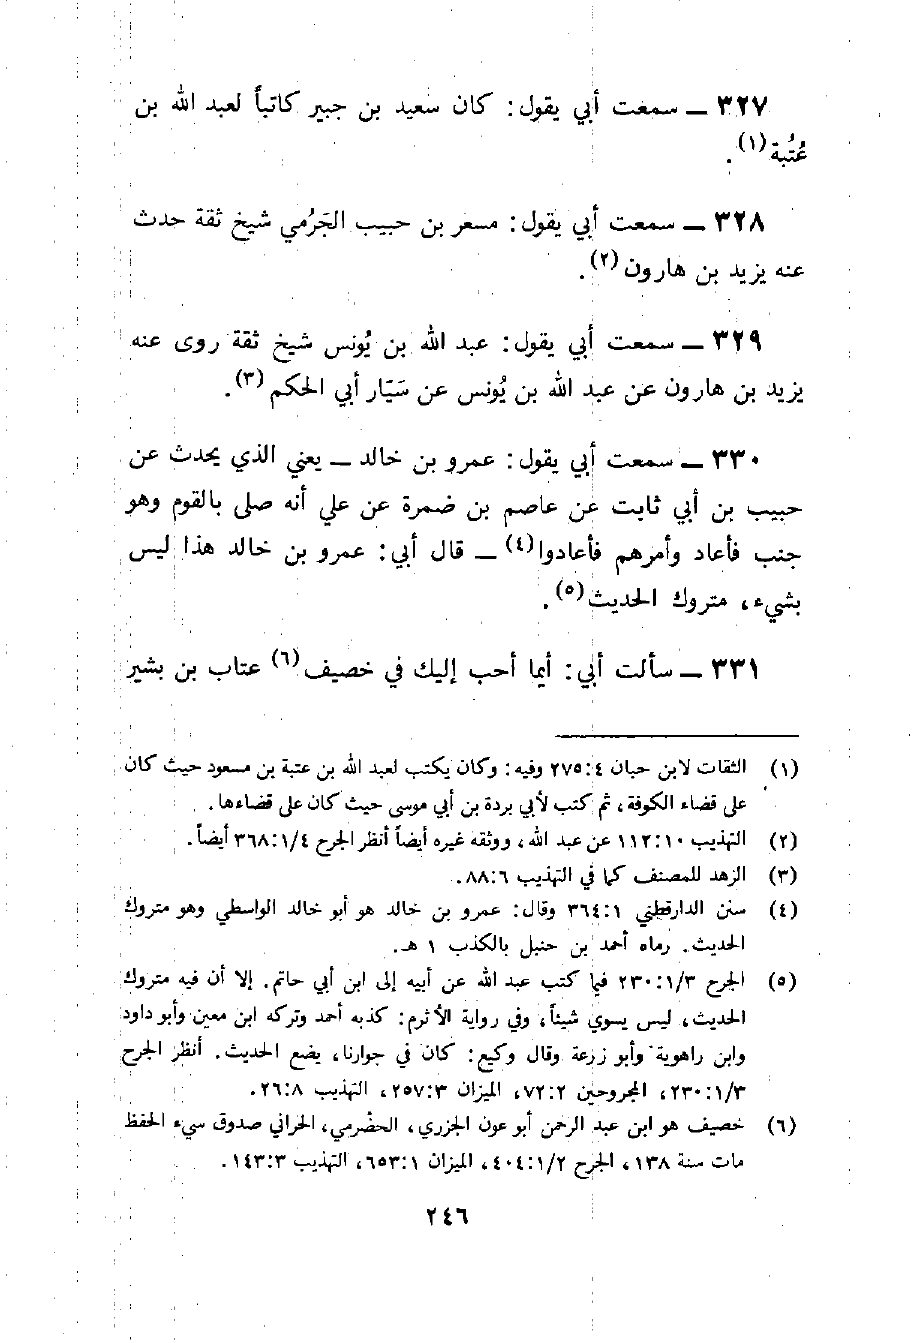 ٣٢٧ ــ سمعت أبي يقول: كان سعيد بن جبير كاتباً لعبد الله بن
عُتُبة(١).
٣٢٨ ــ سمعت أبي يقول: مسعر بن حبيب الجَرُمي شيخ ثقة حدث
عنه يزيد بن هارون(٢).
٣٢٩ ــ سمعت أبي يقول: عبد الله بن يُونس شيخ ثقة روى عنه
يزيد بن هارون عن عبد الله بن يُونس عن سَيّار أبي الحكم(٣).
٣٣٠ ــ سمعت أبي يقول: عمرو بن خالد ــ يعني الذي يحدث عن
حبيب بن أبي ثابت عن عاصم بن ضمرة عن علي أنه صلى بالقوم وهو
جنب فأعاد وأمرهم فأعادوا(٤) ــ قال أبي: عمرو بن خالد هذا ليس
بشيء، متروك الحديث(٥).
٣٣١ ــ سألت أبي: أيما أحب إليك في خصيف(٦) عتاب بن بشير
(١) الثقات لابن حبان ٤:٢٧٥ وفيه: وكان يكتب لعبد الله بن عتبة بن مسعود حيث كان
على قضاء الكوفة، ثم كتب لأبي بردة بن أبي موسى حيث كان على قضاءها.
(٢) التهذيب ١٠:١١٢ عن عبد الله، ووثقه غيره أيضاً أنظر الجرح ١/٤:٣٦٨ أيضاً.
(٣) الزهد للمصنف كما في التهذيب ٦:٨٨.
(٤) سنن الدارقطني ١:٣٦٤ وقال: عمرو بن خالد هو أبو خالد الواسطي وهو متروك
الحديث. رماه أحمد بن حنبل بالكذب ١ هـ.
(٥) الجرح ١/٣:٢٣٠ فيما كتب عبد الله عن أبيه إلى ابن أبي حاتم. إلا أن فيه متروك
الحديث، ليس يسوي شيئاً، وفي رواية الأثرم: كذبه أحمد وتركه ابن معين وأبو داود
وابن راهوية وأبو زرعة وقال وكيع: كان في جوارنا، يضع الحديث. أنظر الجرح
١/٣:٢٣٠، المجروحين ٢:٧٢، الميزان ٣:٢٥٧، التهذيب ٨:٢٦.
(٦) خصيف هو ابن عبد الرحمن أبو عون الجزري، الحضْرمي، الحراني صدوق سيء الحفظ
مات سنة ١٣٨، الجرح ١/٢:٤٠٤، الميزان ١:٦٥٣، التهذيب ٣:١٤٣.
٢٤٦